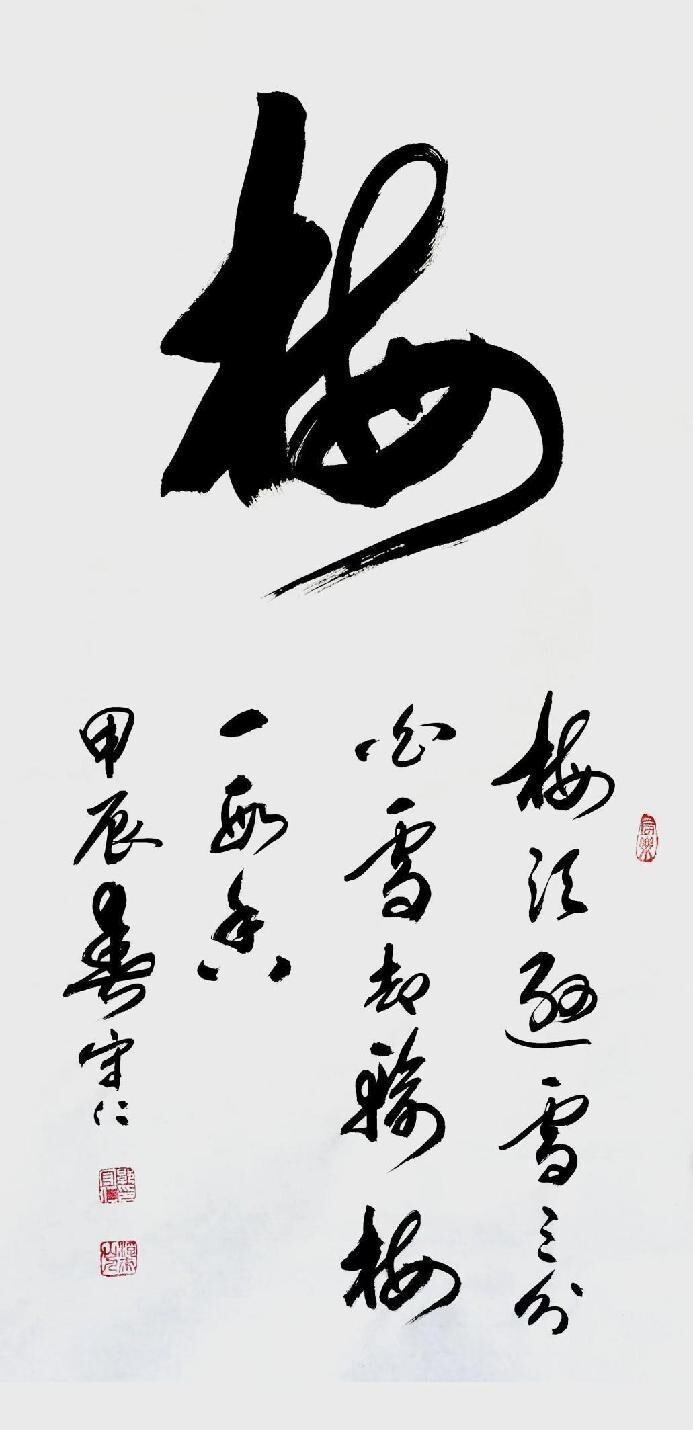 梅
梅须逊雪三分
白雪却输梅
一段香
甲辰春守仁